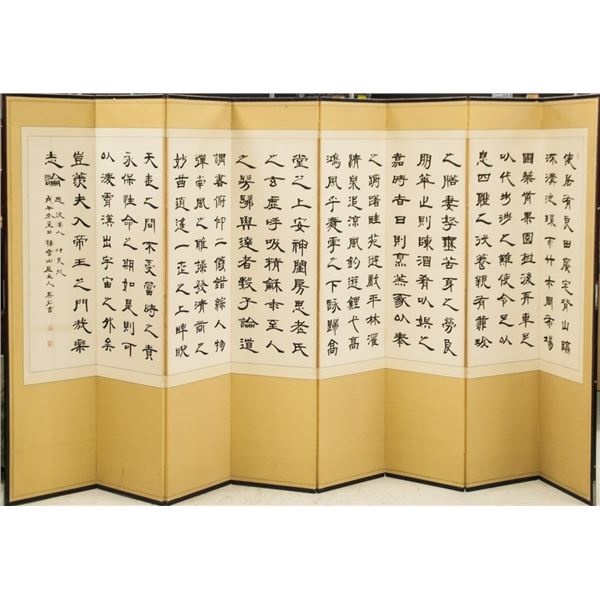 使居有良田廣宅背山臨
流溝池環帀竹木周布場
圃築前果園樹後舟車足
以代步涉之難使令足以
息四體之役養親有兼珍
之膳妻孥無苦身之勞良
朋萃止則陳酒肴以娛之
嘉時吉日則烹羔豚以奉
之躊躇畦苑遊戲平林濯
清泉追涼風釣遊鯉弋高
鴻風乎舞雩之下詠歸高
堂之上安神閨房思老氏
之玄虛呼吸精和求至人
之髣髴與達者數子論道
講書俯仰二儀錯綜人物
彈南風之雅操發清商之
妙曲逍遙一世之上睥睨
天地之間不受當時之責
永保性命之期如是則可
以凌霄漢出宇宙之外矣
豈羨夫入帝王之門哉樂
志論
漢人 仲長統
戊午冬至日 雪山 主人 書